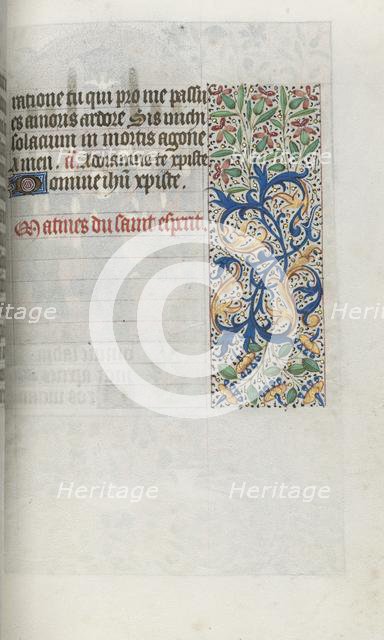 ratione tu qui pro me passus
es amoris ardore Sis michi
solacium in mortis agone
Amen Adoramus te xpiste
Domine ihu xpiste.
Matines du saint esperit.
Heritage Heritage
Heritage Heritage
Heritage Heritage